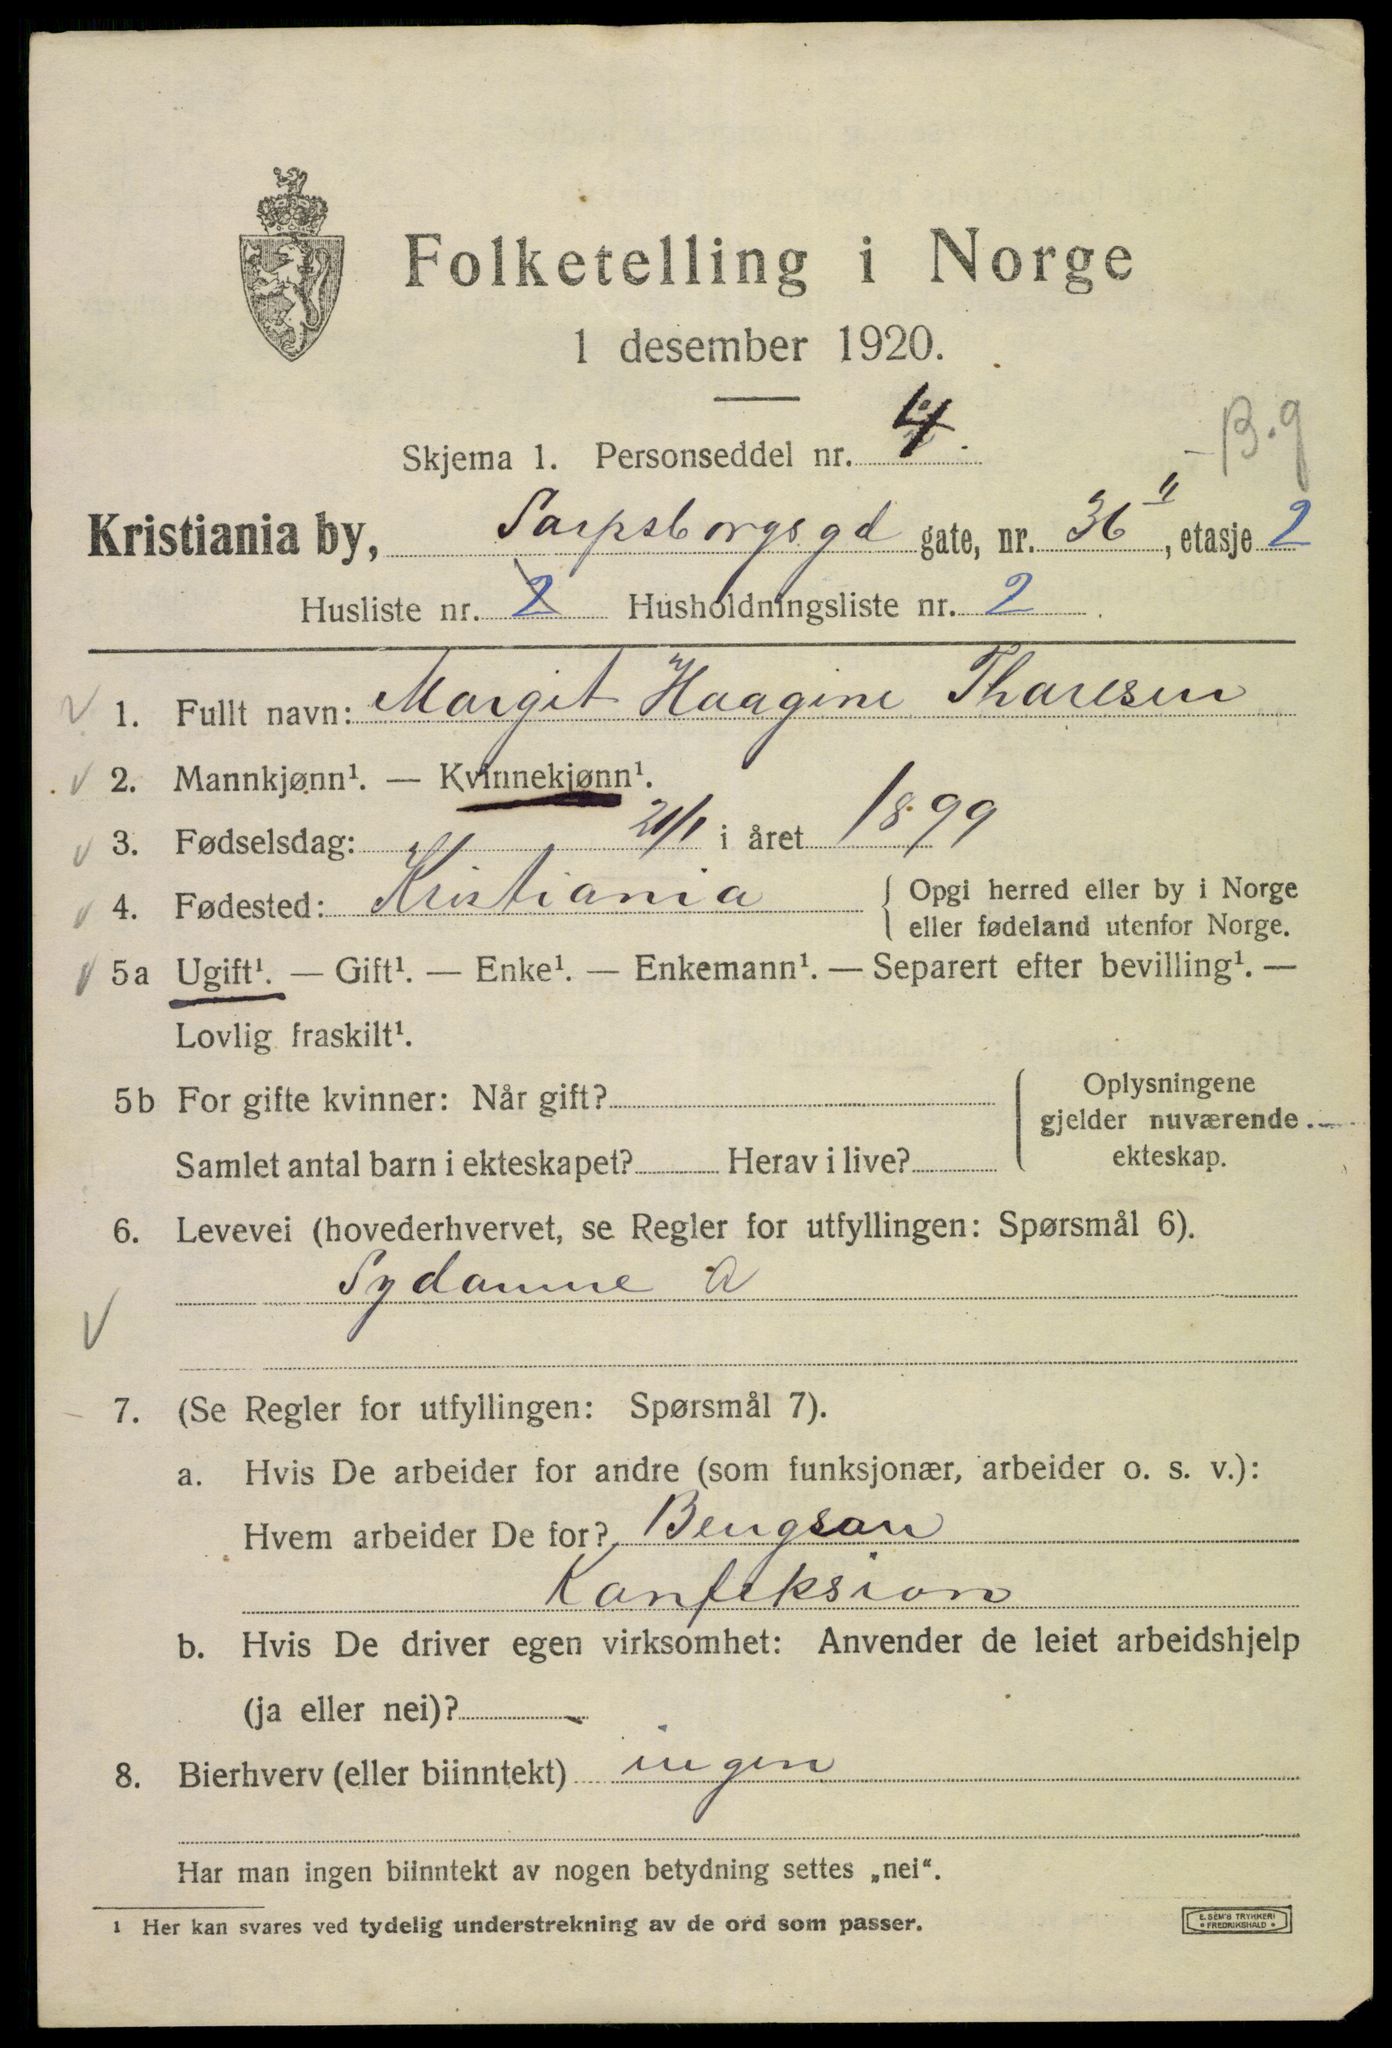 Folketelling i Norge
1 desember 1920.
B.g
Skjema 1. Personseddel nr. 4.
Kristiania by, Sarpsborgsgd gate, nr. 36 II, etasje 2
Husliste nr. 2 Husholdningsliste nr. 2.
1. Fullt navn: Margit Haagine Thoresen
2. Mannkjønn¹. — Kvinnekjønn¹.
3. Fødselsdag: 21/1 i året 1899
4. Fødested: Kristiania { Opgi herred eller by i Norge
eller fødeland utenfor Norge.
5a Ugift¹. — Gift¹. — Enke¹. — Enkemann¹. — Separert efter bevilling¹. —
Lovlig fraskilt¹.
5b For gifte kvinner: Når gift?
Samlet antal barn i ekteskapet? Herav i live?
Oplysningene
gjelder nuværende
ekteskap.
6. Levevei (hovederhvervet, se Regler for utfyllingen: Spørsmål 6).
Sydamme a
7. (Se Regler for utfyllingen: Spørsmål 7).
a. Hvis De arbeider for andre (som funksjonær, arbeider o. s. v.):
Hvem arbeider De for? Bengson
Konfeksion
b. Hvis De driver egen virksomhet: Anvender de leiet arbeidshjelp
(ja eller nei)? -
8. Bierhverv (eller biinntekt) ingen
Har man ingen biinntekt av nogen betydning settes „nei“.
¹ Her kan svares ved tydelig understrekning av de ord som passer.
E. SEM'S TRYKKERI
• FREDRIKSHALD •